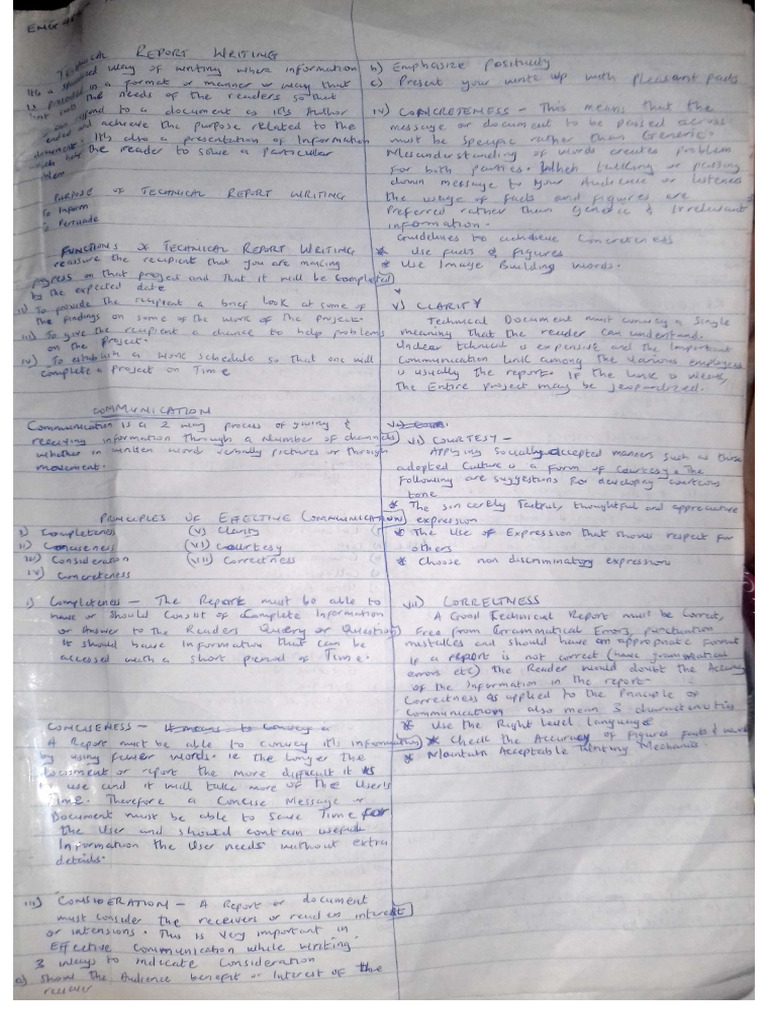 TECHNICAL REPORT WRITING
Its a specialized way of writing where information
is presented in a format or manner or way that
the needs of the readers so that
respond to a document as its Author
and achieve the purpose related to the
document. Its also a presentation of Information
the reader to solve a particular
PURPOSE OF TECHNICAL REPORT WRITING
To Inform
Persuade
FUNCTIONS OF TECHNICAL REPORT WRITING
reassure the recipient that you are making
progress on that project and that it will be completed
by the expected date
ii) To provide the recipient a brief look at some of
the findings on some of the work of the Project.
iii) To give the recipient a chance to help problems
on the Project.
iv) To establish a work schedule so that one will
complete a project on Time
COMMUNICATION
Communication is a 2 way process of giving &
receiving information through a number of channels
whether in written words verbally pictures or through
movement.
PRINCIPLES OF EFFECTIVE COMMUNICATION
i) Completeness (v) Clarity
ii) Conciseness (vi) Courtesy
iii) Consideration (vii) Correctness
iv) Concreteness
i) Completeness - The Report must be able to
have or should Consist of Complete Information
or Answer to the Readers Query or Question
It should have information that can be
accessed with a short period of Time.
CONCISENESS - It means to Convey a
A Report must be able to convey its information
by using fewer words. ie The longer the
document or report the more difficult it is
use and it will take more of the Users
Time. Therefore a Concise Message or
Document must be able to Save Time for
the User and should contain useful
Information the User needs without extra
details.
iii) CONSIDERATION - A Report or document
must consider the receivers or readers interest
or intensions. This is very important in
Effective Communication while writing.
3 ways to indicate Consideration
a) Show The Audience benefit or Interest of the
receiver
b) Emphasize Positively
c) Present your write up with Pleasant facts
iv) CONCRETENESS - This means that the
message or document to be passed across
must be Specific rather than Generic.
Misunderstanding of words creates problem
for both parties. When talking or passing
down message to your Audience or listeners
the usage of facts and figures are
Preferred rather than generic & Irrelevant
information.
Guidelines to achieve Concreteness
* Use facts & figures
* Use Image Building words.
v) CLARITY
Technical Document must convey a Single
meaning that the reader can understand.
Unclear technical is expensive and the Important
Communication link among the various employees
is usually the report. If the link is weak,
the Entire project may be jeopardized.
vi) COURTESY -
Applying Socially accepted manners such as those
adopted Culture is a form of Courtesy. The
following are suggestions for developing courteous
tone
* The sincerely Tactful, thoughtful and appreciative
expression
* The Use of Expression that shows respect for
others
* Choose non discriminatory expressions
vii) CORRECTNESS
A Good Technical Report must be Correct,
Free from Grammatical Errors, punctuation
mistakes and should have an appropriate format
If a report is not correct (have grammatical
errors etc) The Reader would doubt the Accuracy
of the Information in the report.
Correctness as applied to the Principle of
Communication also mean 3 characteristics
* Use the Right level Language
* Check the Accuracy of figures facts & words
* Maintain Acceptable Writing Mechanics.